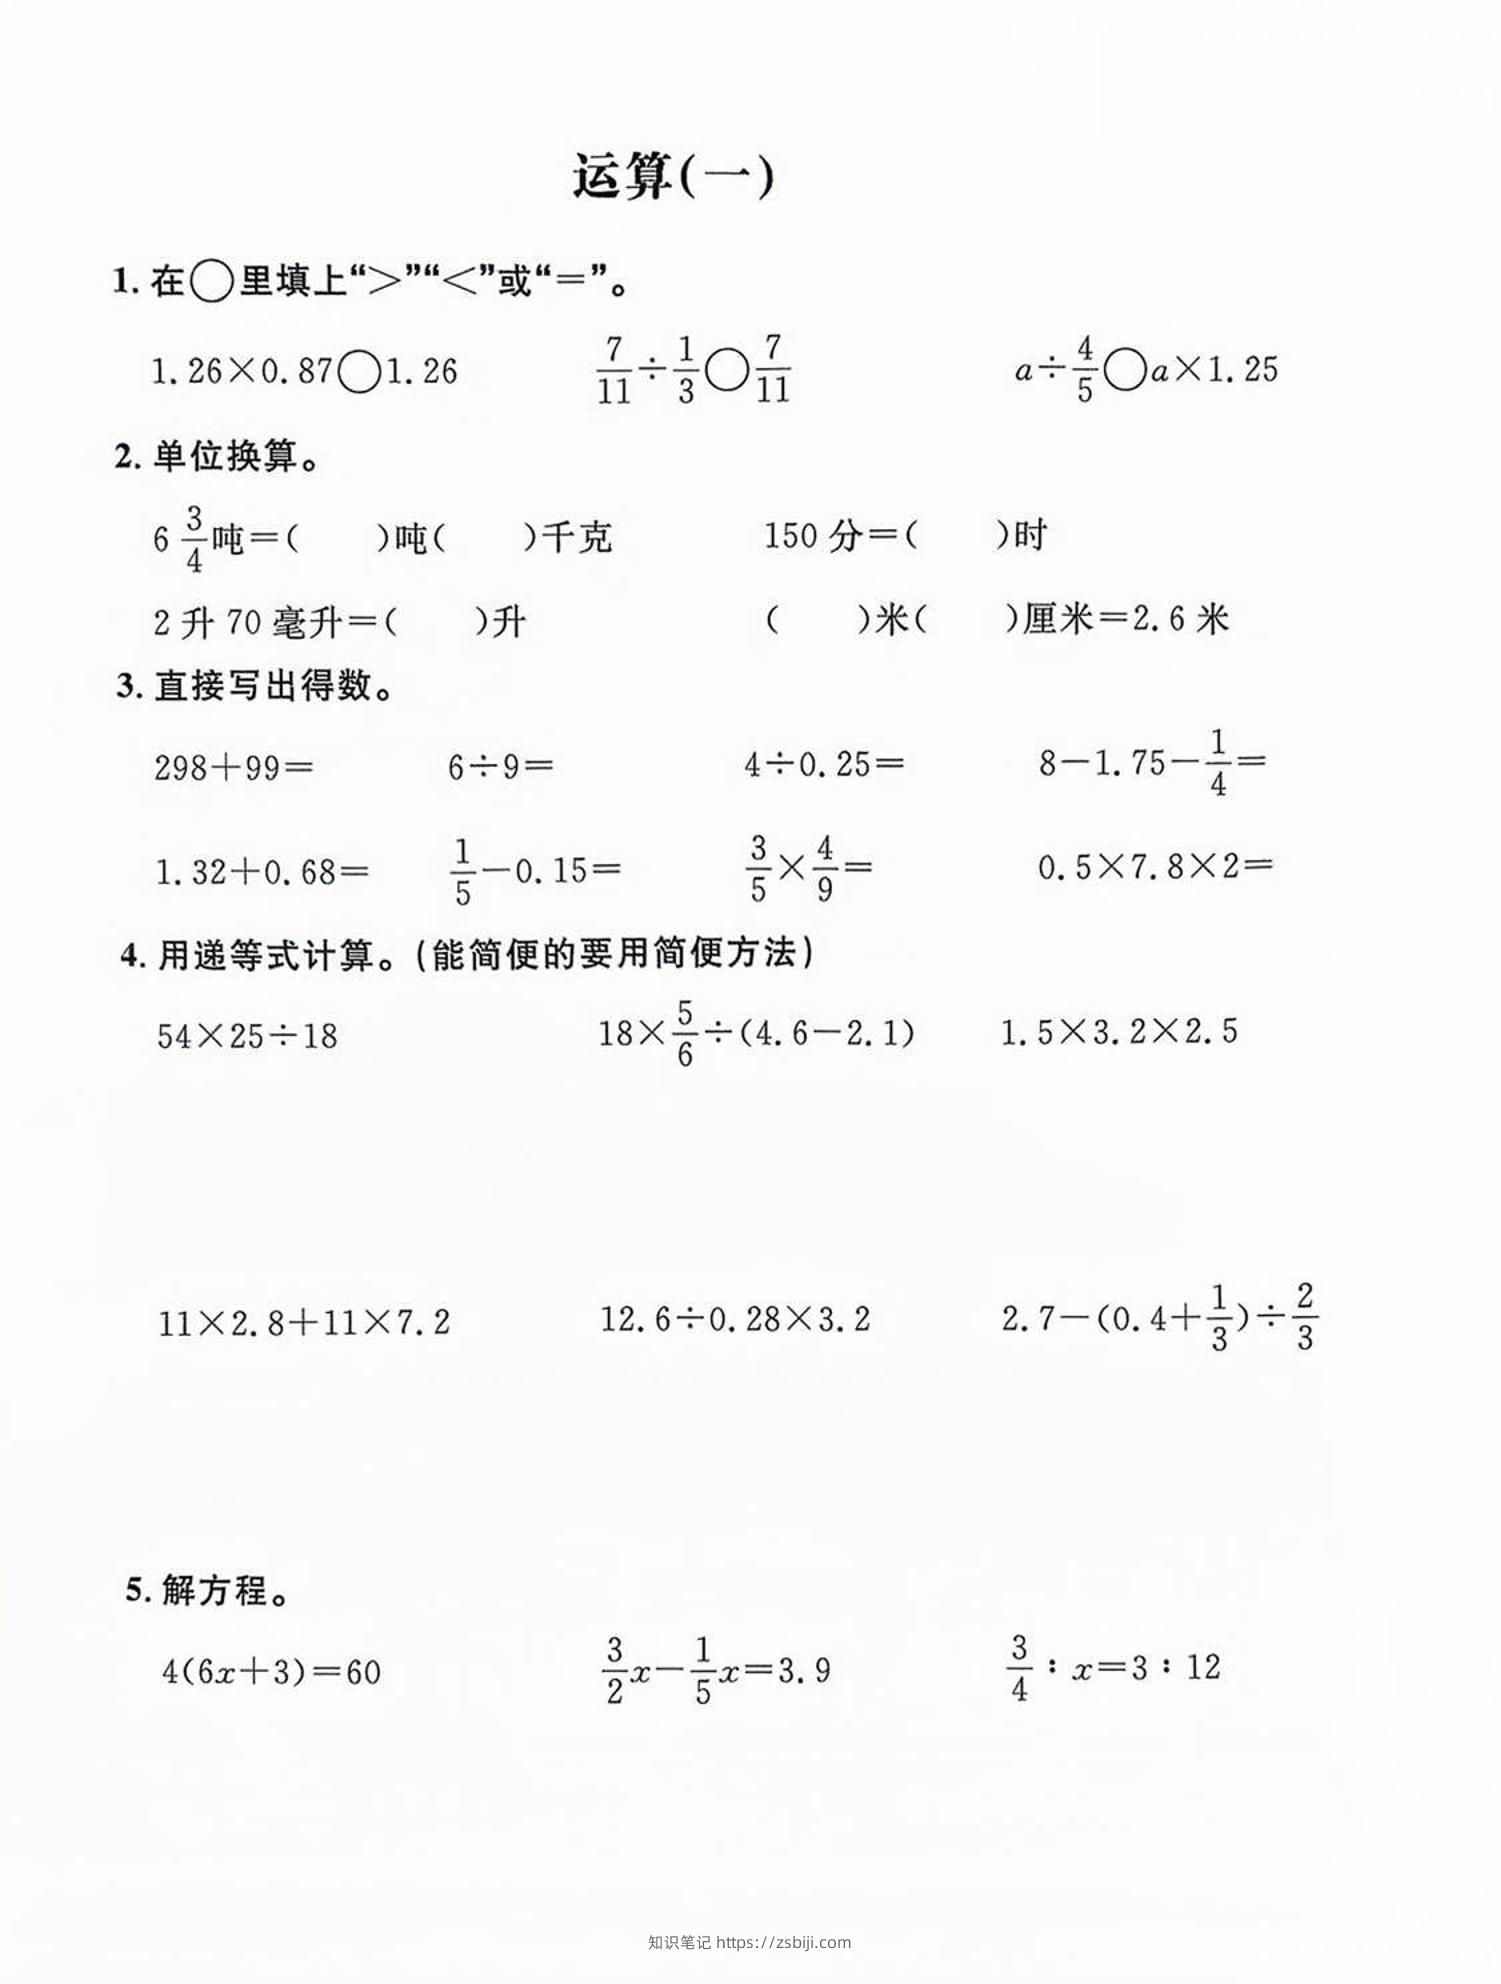 运算(一)
1. 在○里填上“>”“<”或“=”。
1.26×0.87○1.26 7/11÷1/3○7/11 a÷4/5○a×1.25
2. 单位换算。
6 3/4吨=( )吨( )千克 150 分=( )时
2 升 70 毫升=( )升 ( )米( )厘米=2.6 米
3. 直接写出得数。
298+99= 6÷9= 4÷0.25= 8-1.75-1/4=
1.32+0.68= 1/5-0.15= 3/5×4/9= 0.5×7.8×2=
4. 用递等式计算。(能简便的要用简便方法)
54×25÷18 18×5/6÷(4.6-2.1) 1.5×3.2×2.5
11×2.8+11×7.2 12.6÷0.28×3.2 2.7-(0.4+1/3)÷2/3
5. 解方程。
4(6x+3)=60 3/2x-1/5x=3.9 3/4:x=3:12
知识笔记 https://zsbiji.com